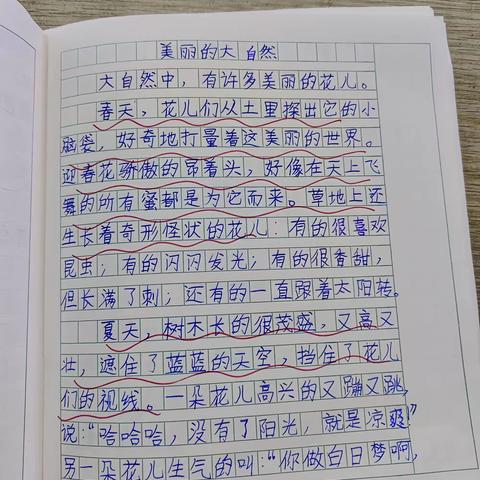 美丽的大自然
大自然中，有许多美丽的花儿。
春天，花儿们从土里探出它的小
脑袋，好奇地打量着这美丽的世界。
迎春花骄傲的昂着头，好像在天上飞
舞的所有蜜都是为它而来。草地上还
生长着奇形怪状的花儿：有的很喜欢
昆虫；有的闪闪发光；有的很香甜，
但长满了刺；还有的一直跟着太阳转。
夏天，树木长的很茂盛，又高又
壮，遮住了蓝蓝的天空，挡住了花儿
们的视线。一朵花儿高兴的又蹦又跳，
说：“哈哈哈，没有了阳光，就是凉爽！”
另一朵花儿生气的叫：“你做白日梦啊，